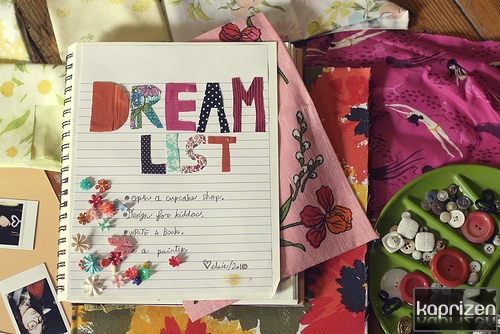 DREAM
LIST
• open a cupcake shop.
• Design for kiddos.
• WRITE A Book.
a painter
2010
kaprizen